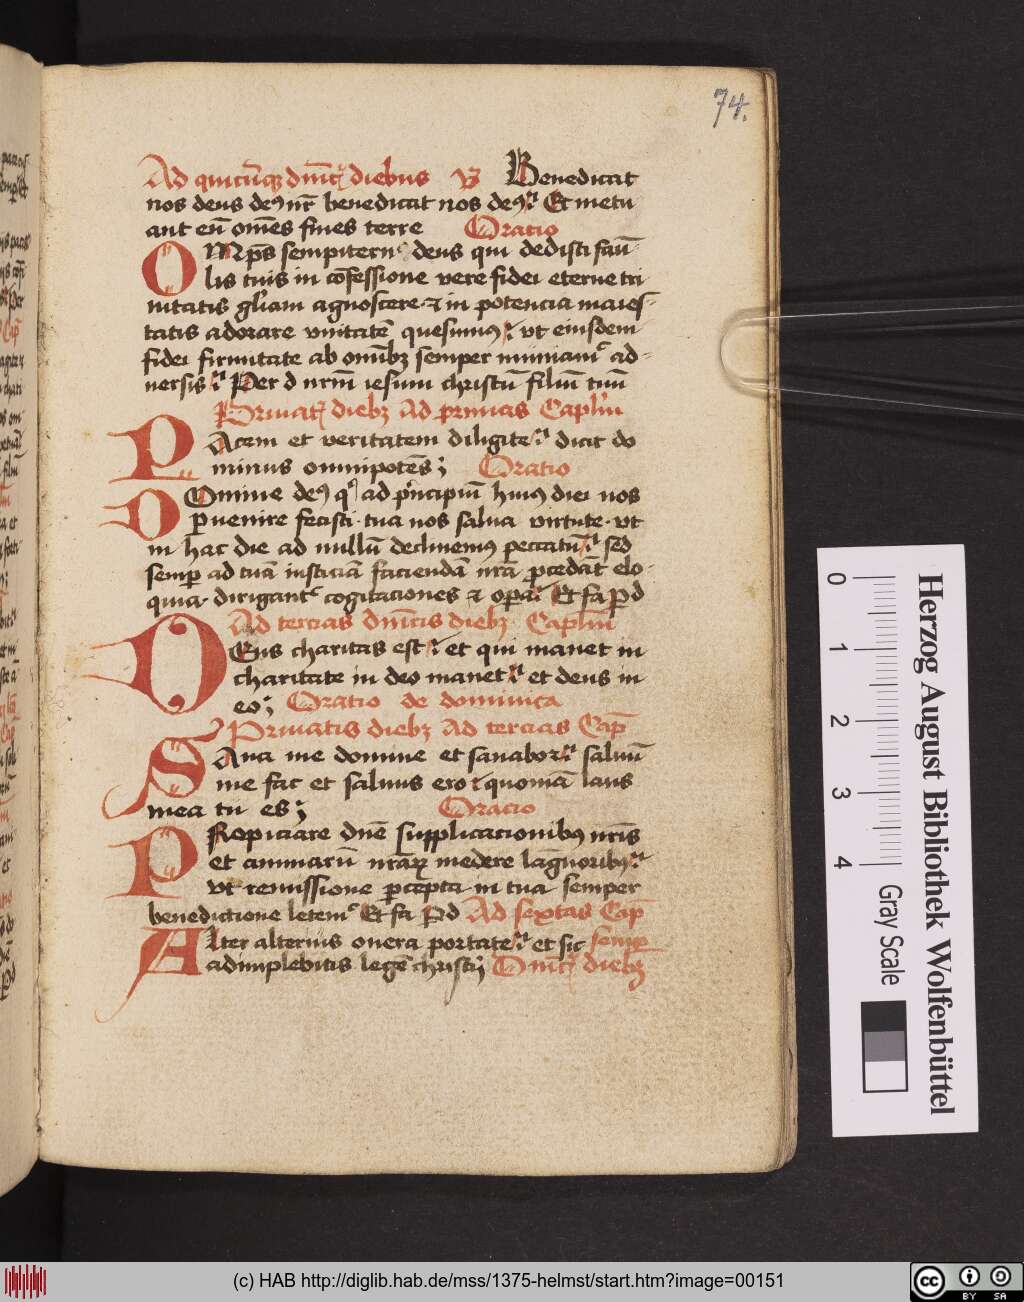 74.
Ad quicūqꝫ dn̄icꝭ diebus ℣ Benedicat
nos deus deꝰ nr̄ benedicat nos deꝰ Et metu
ant eū om̄es fines terre Oratio
OMp̄s sempiternꝰ deus qui dedisti fāu
lis tuis in cōfessione vere fidei eterne tri
nitatis gl̄iam agnoscere ⁊ in potencia maies-
tatis adorare vnitatē quesumꝰ vt eiusdem
fidei firmitate ab om̄ibꝫ semper muniamᷣ ad-
uersis Per d nr̄m iesum christū filiū tuū
Priuatꝭ diebꝫ Ad primas Capl̄m
PAcem et veritatem diligite dicit do
minus omnipotēs; Oratio
DOmine deꝰ qͥ ad pͥncipiū huiꝰ diei nos
ꝑuenire fecisti tua nos salua virtute vt
in hac die ad nullū declinemꝰ peccatū sed
semꝑ ad tuā iusticiā faciendā nr̄a ꝓcedāt elo-
quia dirigantᷣ cogitaciones ⁊ oꝑa Et fa ꝑ d
Ad tercias dn̄icis diebꝫ Capl̄m
DEus charitas est et qui manet in
charitate in deo manet et deus in
eo; Oratio de dominica
Priuatis diebꝫ Ad tercias Cap̄
SAna me domine et sanabor saluū
me fac et saluus ero quoniā laus
mea tu es; Oracio
PRopiciare dn̄e supplicacionibꝰ nr̄is
et animarū nr̄aꝝ medere lāguoribꝰ
vt remissione ꝑcepta in tua semper
benedictione letemᷣ Et fa ꝑ d Ad sextas Cap̄
ALter alterius onera portate et sic semꝑ
adimplebitis legē christi; Dn̄icꝭ diebꝫ
0 1 2 3 4
Gray Scale
Herzog August Bibliothek Wolfenbüttel
(c) HAB http://diglib.hab.de/mss/1375-helmst/start.htm?image=00151
cc BY SA